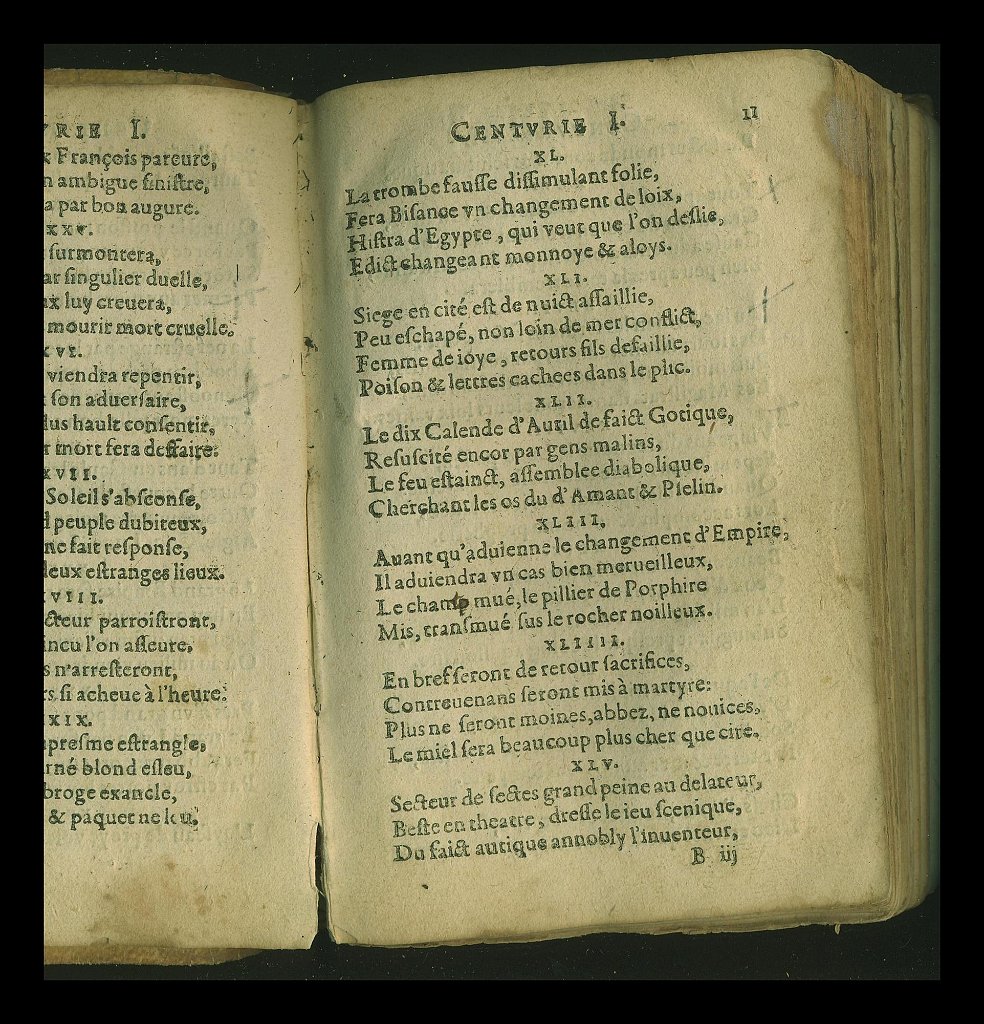 RIE I.
François pareure,
ambigue siniſtre,
a par bon augure.
ſurmontera,
ar ſingulier duelle,
luy creuera,
mourir mort cruelle.
viendra repentir,
ſon aduerſaire,
lus hault conſentir,
mort fera deffaire.
XVII.
Soleil s'abſconſe,
peuple dubiteux,
ne fait reſponſe,
deux eſtranges lieux.
VIII.
cteur parroiſtront,
incu l'on aſſeure,
s n'arreſteront,
rs, ſi acheue à l'heure.
XIX.
preſme eſtrangle,
rné blond eſleu,
broge exancle,
& paquet ne leu,
CENTVRIE I. 11
XL.
La trombe fauſſe diſſimulant folie,
Fera Biſance vn changement de loix,
Hiſtra d'Egypte, qui veut que l'on deſlie,
Edict changeant monnoye & aloys.
XLI.
Siege en cité eſt de nuict aſſaillie,
Peu eſchapé, non loin de mer conflict,
Femme de ioye, retours fils defaillie,
Poiſon & lettres cachees dans le plic.
XLII.
Le dix Calende d'Auril de faict Gotique,
Reſuſcité encor par gens malins,
Le feu eſtainct, aſſemblee diabolique,
Cherchant les os du d'Amant & Pſelin.
XLIII.
Auant qu'aduienne le changement d'Empire,
Il aduiendra vn cas bien merueilleux,
Le champ mué, le pillier de Porphire
Mis, tranſmué ſus le rocher noilleux.
XLIIII.
En bref ſeront de retour ſacrifices,
Contreuenans ſeront mis à martyre:
Plus ne ſeront moines, abbez, ne nouices,
Le miel ſera beaucoup plus cher que cire.
XLV.
Secteur de ſectes grand peine au delateur,
Beſte en theatre, dreſſe le ieu ſcenique,
Du faict autique annobly l'inuenteur,
B iij